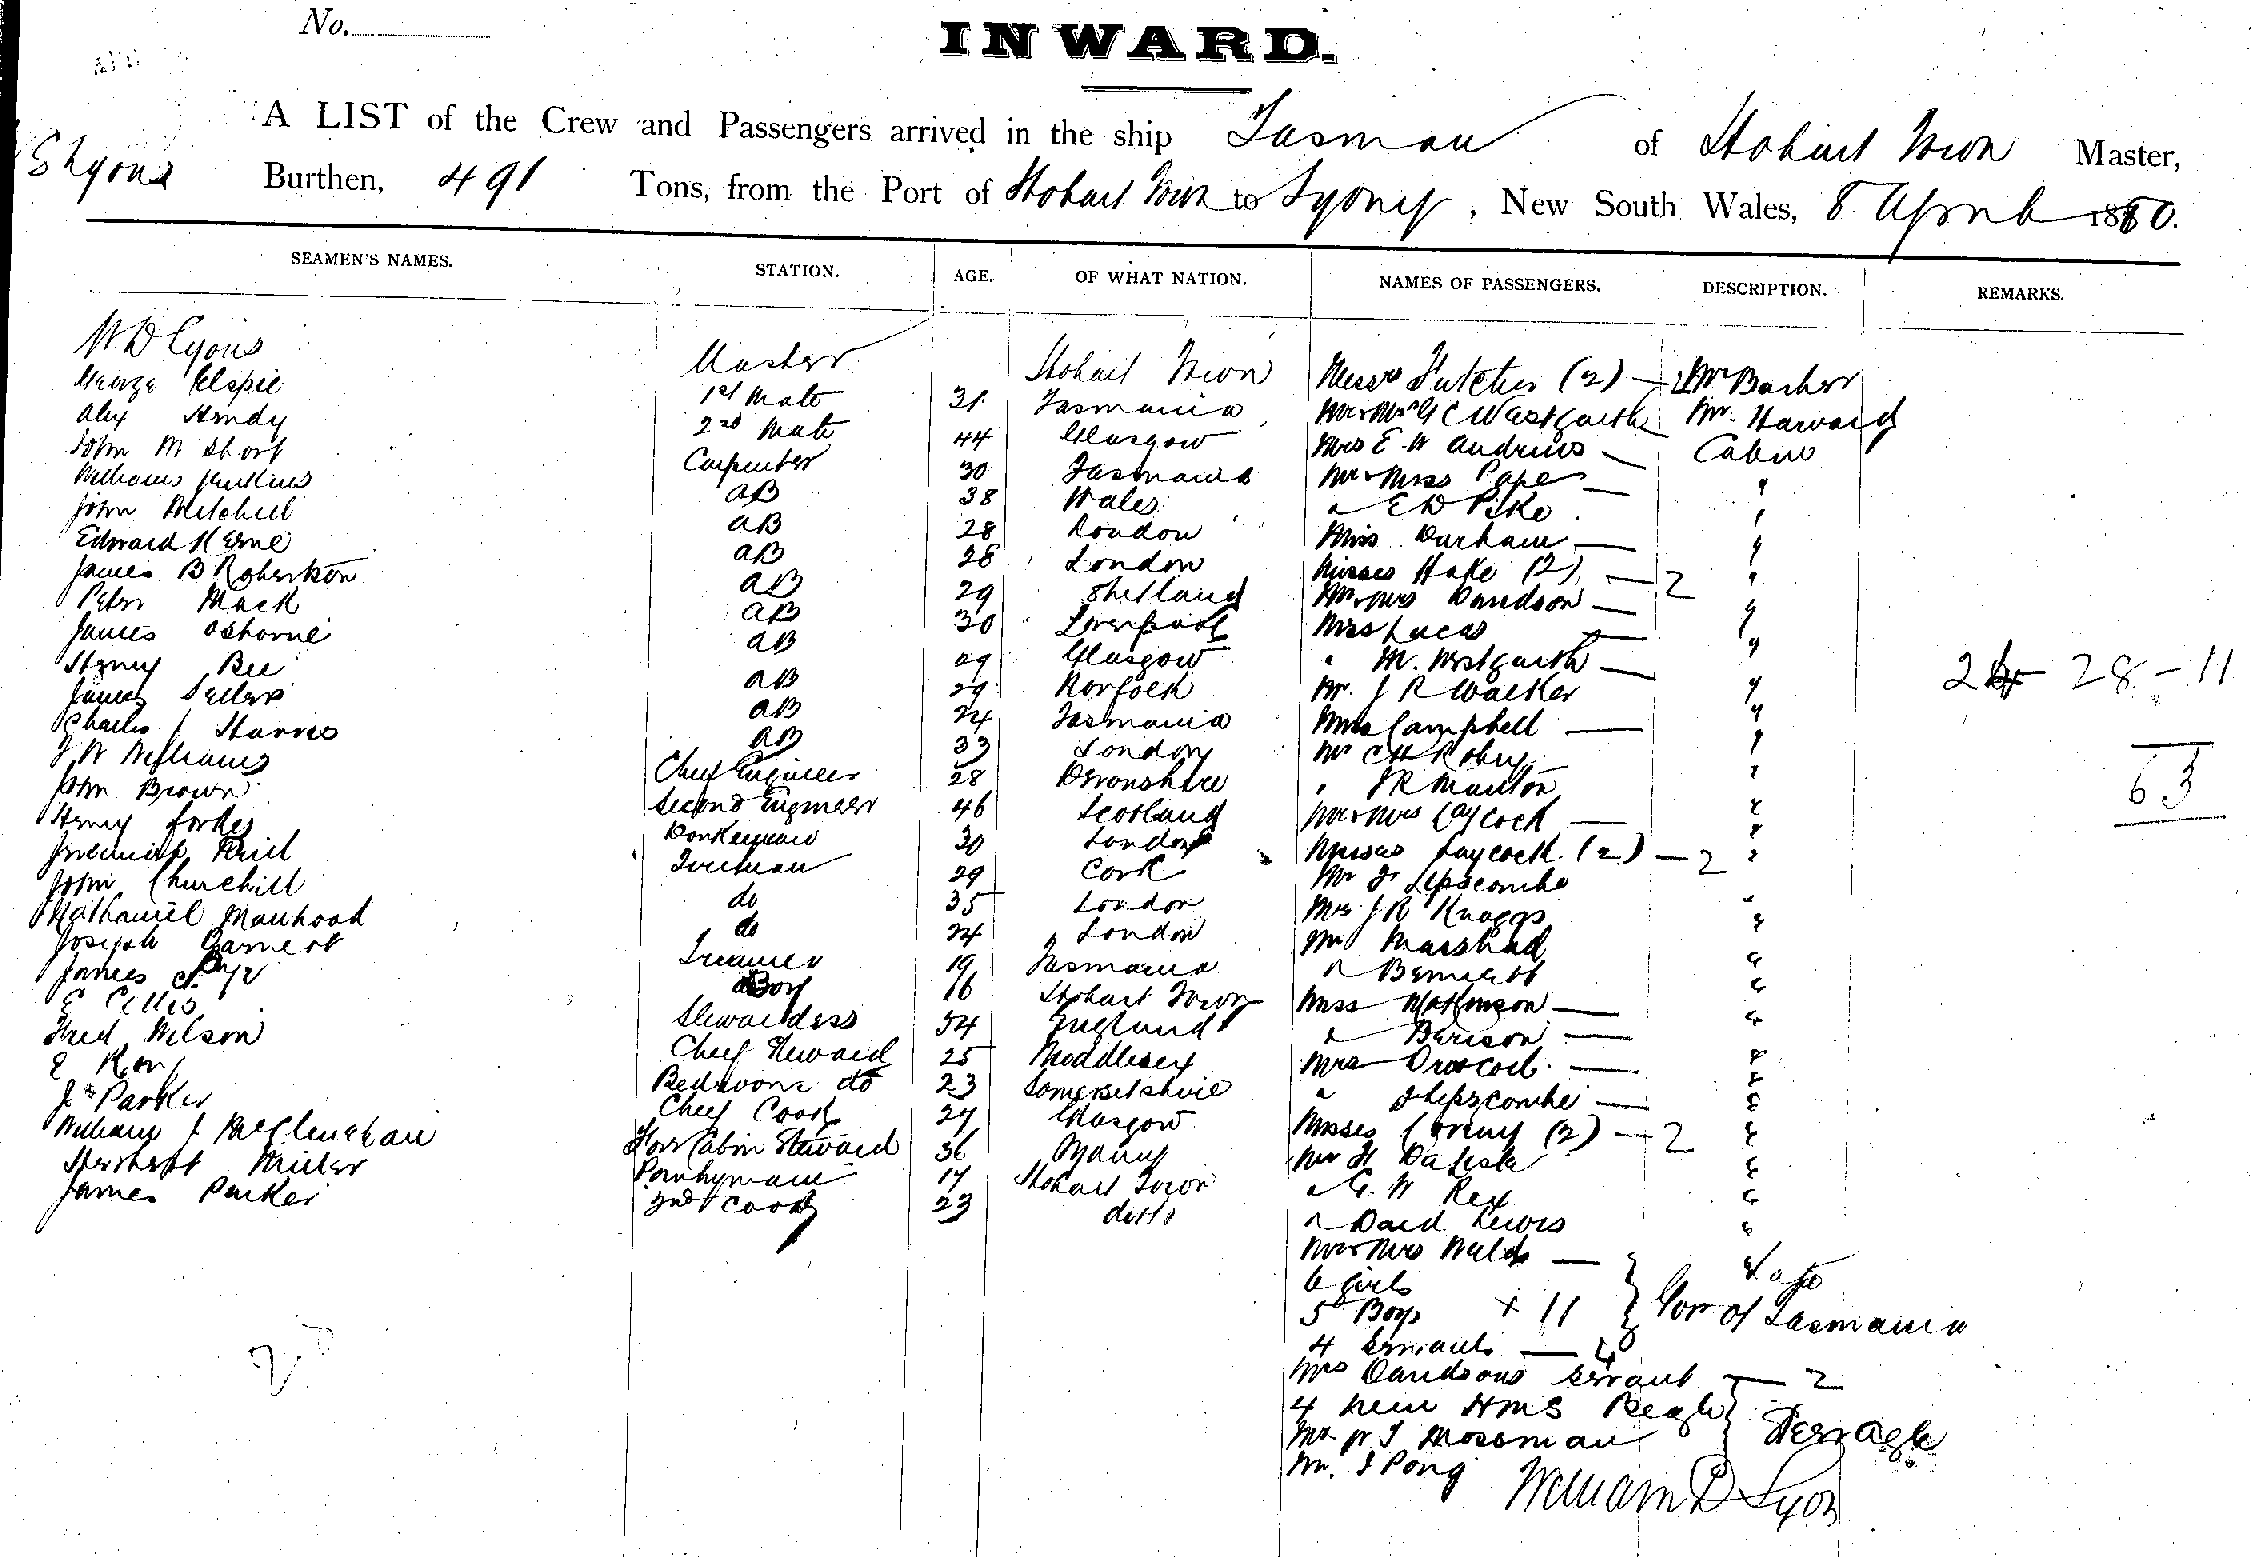 No.
INWARD.
A LIST of the Crew and Passengers arrived in the ship Tasman of Hobart Town Master,
Lyons Burthen, 491 Tons, from the Port of Hobart Town to Sydney, New South Wales, 8 April 1880.
SEAMEN'S NAMES. STATION. AGE. OF WHAT NATION. NAMES OF PASSENGERS. DESCRIPTION. REMARKS.
W D Lyons Master Hobart Town Messrs Futcher (2) — 2 Mr Barber
George Clspie 1st Mate 31 Tasmania Mr & Mrs G C Westgarth Mr. Harward
Alex Hendy 2nd Mate 44 Glasgow Mrs E W Andrews — Cabin
John M Short Carpenter 30 Tasmania Mr & Miss Pape — "
William Jenkins AB 38 Wales " E D Pike "
John Mitchell AB 28 London Miss Durham — "
Edward Kerne AB 28 London Misses Hake (2) — 2 "
James B Robertson AB 29 Shetland Mr & Mrs Davidson — "
Peter Mack AB 30 Liverpool Miss Lucas — "
James Osborne AB 29 Glasgow " M. Westgarth — "
Henry Bee AB 29 Norfolk Mr. J R Walker "
James Sellers AB 24 Tasmania Mrs Campbell — "
Charles J Harris AB 33 London Mr C H Robey "
J W Williams Chief Engineer 28 Devonshire " J R Manton "
John Brown Second Engineer 46 Scotland Mr & Mrs Laycock — "
Henry Forbes Donkeyman 30 London Misses Laycock (2) — 2 "
Jeremiah Fireman 29 Cork Mr F Lipscombe "
John Churchill do 35 London Mrs J R Knaggs "
Nathaniel Manhood do 24 London Mr Marshall "
Joseph Garnett Trimmer 19 Tasmania " Bennett "
James Pye Boy 16 Hobart Town Miss Watkinson — "
E Ellis Stewardess 34 England " Berison — "
Fred Wilson Chief Steward 25 Middlesex Mrs Driscoll — "
E Roy Bedroom do 23 Somersetshire " Lipscombe — "
Js Parker Chief Cook 27 Glasgow Misses (2) — 2 "
William J McClenahan Fore Cabin Steward 36 Mr H "
Herbert Miller Pantryman 17 Hobart Town " G. W Rex "
James Parker 2nd Cook 23 ditto " David Lewis "
Mr & Mrs Weld —
6 Girls
5 Boys + 11 Gov of Tasmania
4 Servants — 4
Mrs Davidsons Servant — 2
4 men HMS Beagle
Mr W J Mossman Steerage
Mr. J Pong
William D Lyon
24 28 - 11
63